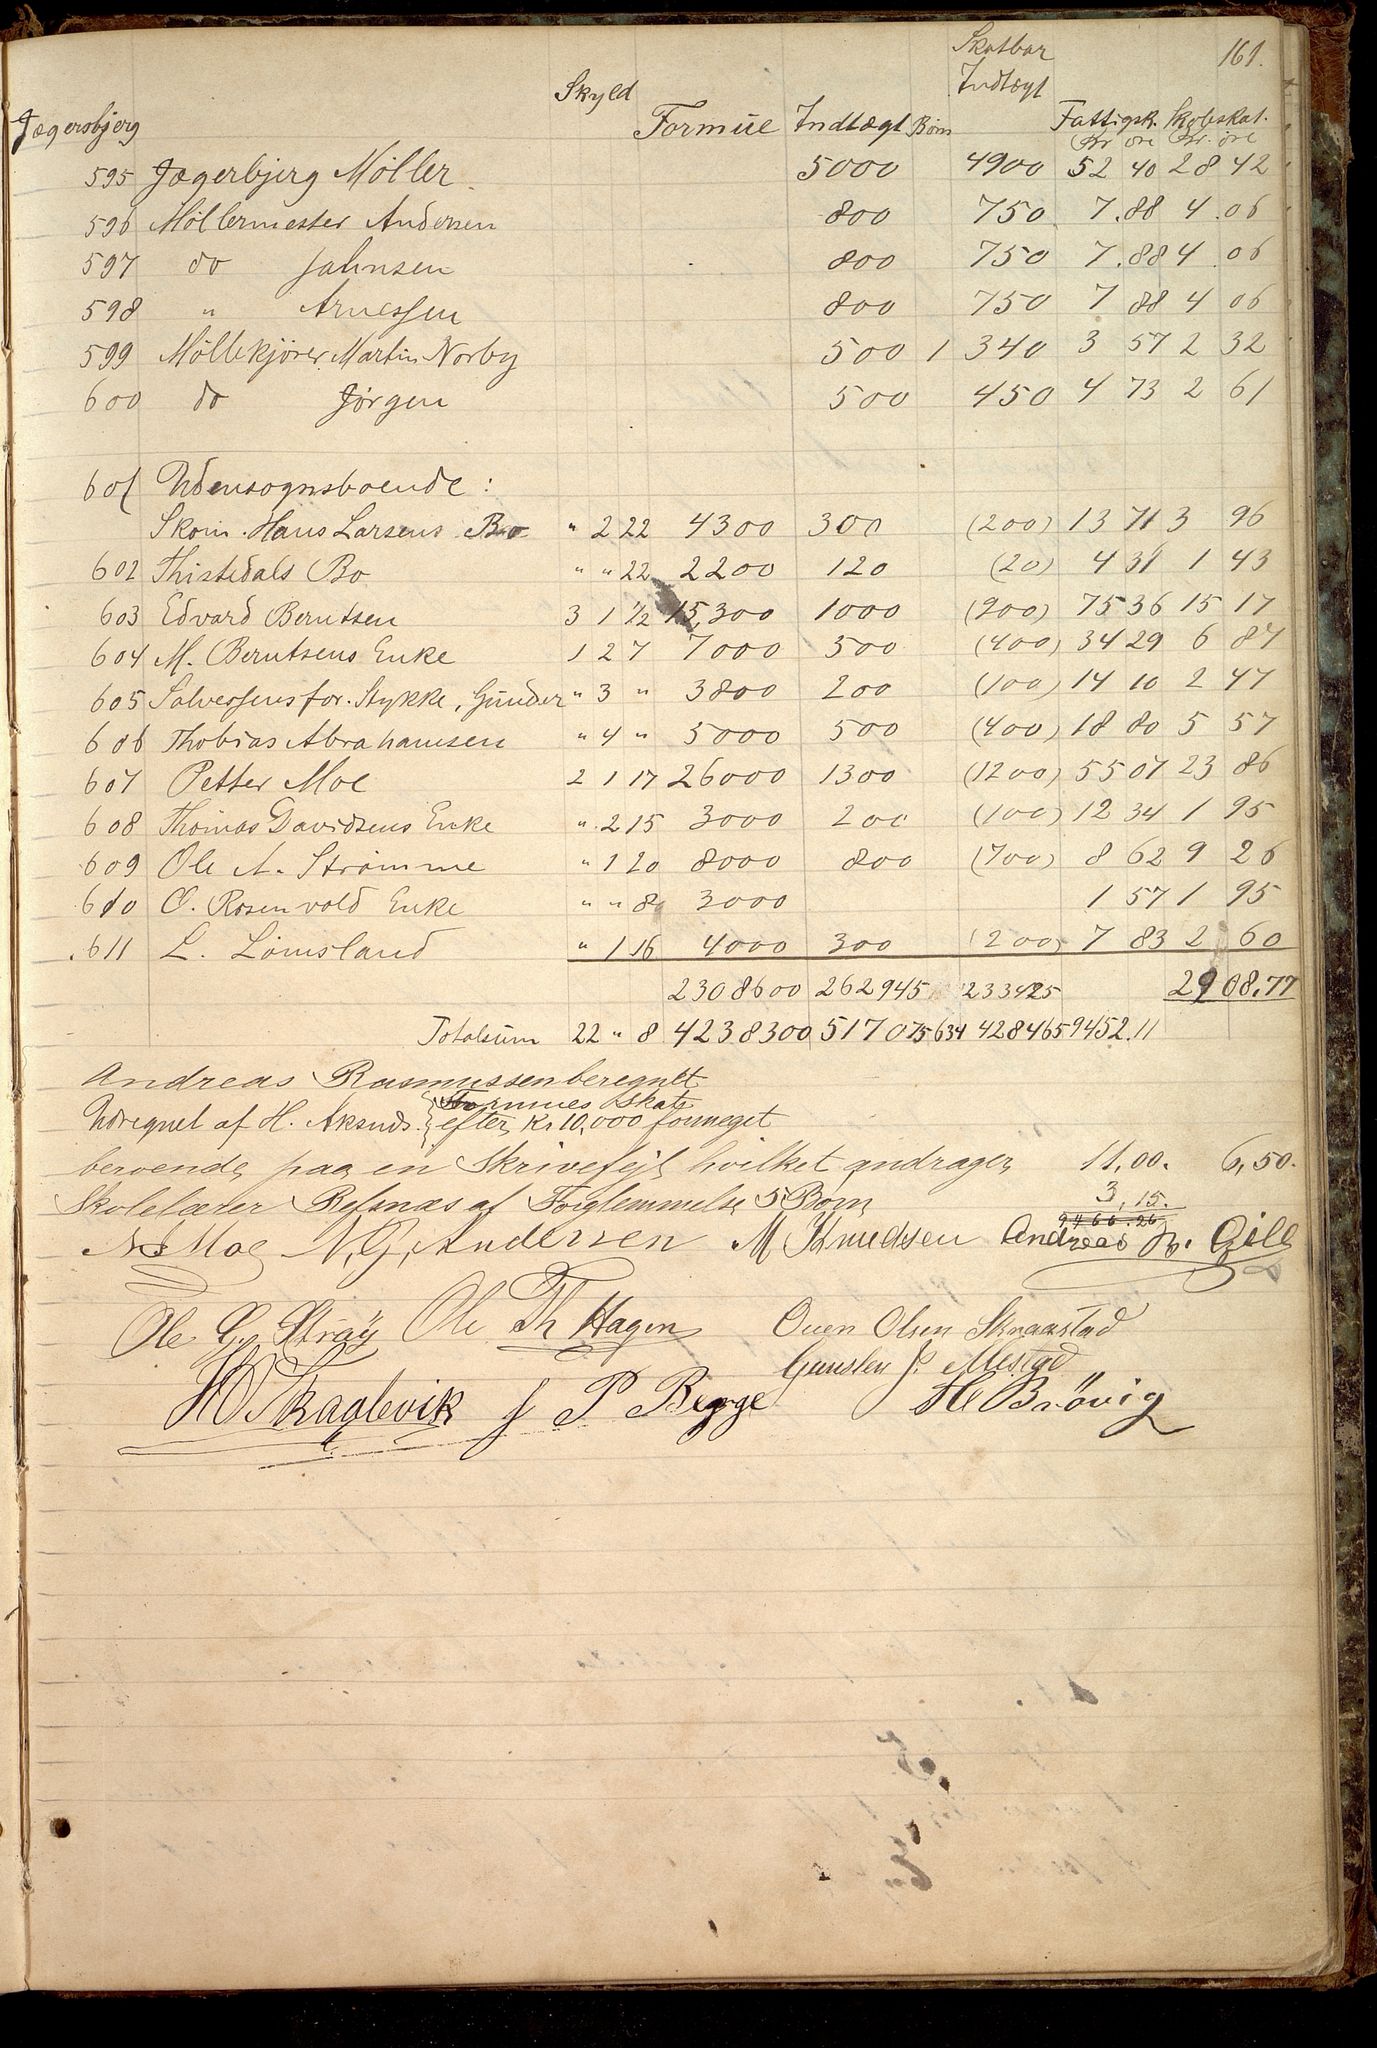 161.
Skatbar
Skyld Indtægt
Jægersbjerg Formue Indtægt Børn Fattigsk. Skoleskat.
Kr øre Kr. øre
595 Jægerbjerg Möller 5000 4900 52 40 28 42
596 Möllermester Andersen 800 750 7.88 4.06
597 do Jahnsen 800 750 7.88 4.06
598 " Arnessen 800 750 7 88 4 06
599 Möllekjører Martin Norby 500 1 340 3 57 2 32
600 do Jørgen 500 450 4 73 2 61
601 Udensognsboende:
Skom. Hans Larsens Bo " 2 22 4300 300 (200) 13 71 3 96
602 Thistedals Bo " " 22 2200 120 (20) 4 31 1 43
603 Edvard Berntsen 3 1 1/2 15,300 1000 (900) 75 36 15 17
604 M. Berntsens Enke 1 2 7 7000 500 (400) 34 29 6 87
605 Salvessens for. Stykke, Gunder " 3 " 3800 200 (100) 14 10 2 47
606 Thobias Abrahamsen " 4 " 5000 500 (400) 18 80 5 57
607 Petter Moe 2 1 17 26000 1300 (1200) 55 07 23 86
608 Thomas Davidsens Enke " 2 15 3000 200 (100) 12 34 1 95
609 Ole A. Strømme " 1 20 8000 800 (700) 8 62 9 26
610 O. Rosenvold Enke " " 8 3000 1 57 1 95
611 L. Lømsland " 1 16 4000 300 (200) 7 83 2 60
2308600 262945 233425 2908.77
Totalsum 22 " 8 4238300 517075 634 428465 9452.11
Andreas Rasmussen beregnet
Formues skat
Udregnet af H. Aksnds. efter Kr 10,000 formeget
beroende paa en Skrivefejl hvilket andrager 11,00. 6,50.
Skolelærer Refsnæs af Forglemmelse 5 Børn 3,15.
9466.26
N Moe N. G. Andersen M Knudsen Andreas Gill
Ole G. Strøy Ole Th Hagen Ouen Olsen Sknastad
Gunsten J. Mestad
H O Skaglevik J P Begge H Brövig